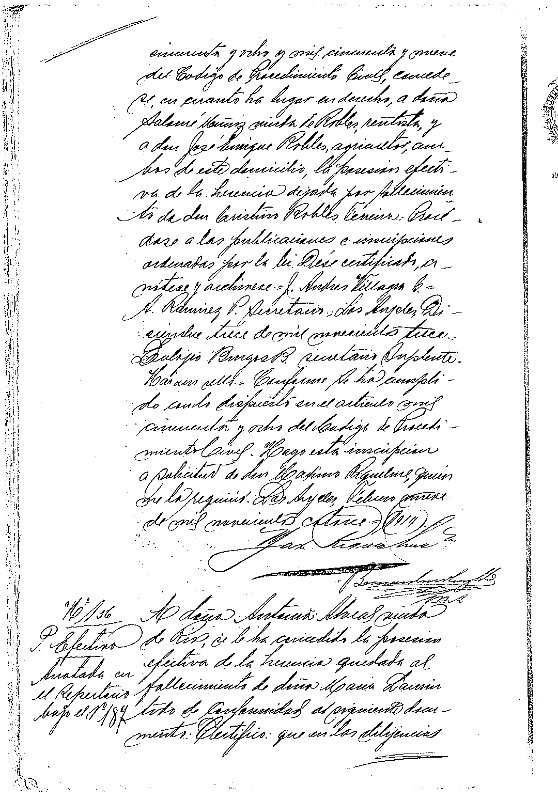 cincuenta y ocho y mil cincuenta y nueve
del Codigo de Procedimiento Civil, concede-
se, en cuanto ha lugar en derecho, a doña
Salomé viuda de Robles, rentista, y
a don José Enrique Robles, agricultor, am-
bos de este domicilio, la posesion efecti-
va de la herencia dejada por fallecimien-
to de don Robles
dase a las publicaciones e inscripciones
ordenadas por la lei. Dése certificado, a-
nótese y archívese.- J. Andres Villagra C.-
A. Ramirez P. Secretario.- Los Anjeles Di-
ciembre trece de mil novecientos trece.
Eulojio Burgos B. secretario Suplente.
Conforme. Se ha cumpli-
do con lo dispuesto en el articulo mil
cincuenta y ocho del Codigo de Procedi-
miento Civil. Hago esta inscripcion
a solicitud de don Riquelme, quien
me la requirió. Los Anjeles, Febrero nueve
de mil novecientos catorce.- (1914)
Nº 136
P. Efectiva
Anotada en
el Repertorio
bajo el Nº 187
A doña Antonia viuda
de se le ha concedido la posesion
efectiva de la herencia quedada al
fallecimiento de doña Maria
de conformidad al siguiente docu-
mento: Certifico: que en las dilijencias